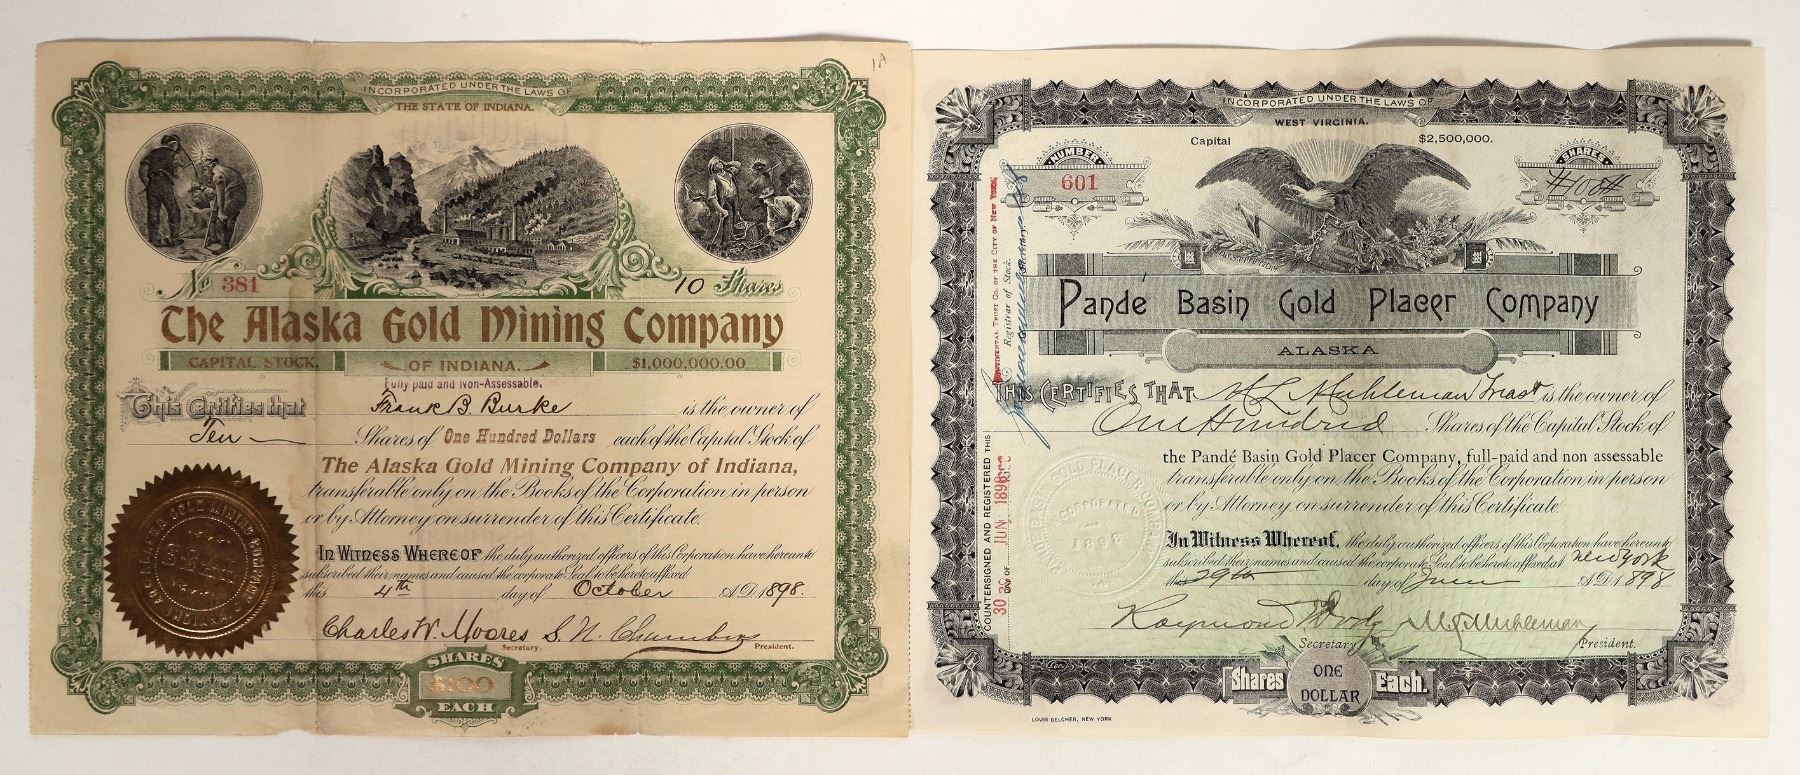 1A
INCORPORATED UNDER THE LAWS OF
THE STATE OF INDIANA.
No 381
10 Shares
The Alaska Gold Mining Company
CAPITAL STOCK. OF INDIANA. $1,000,000.00
Fully paid and Non-Assessable.
This Certifies that Frank B. Burke is the owner of
Ten Shares of One Hundred Dollars each of the Capital Stock of
The Alaska Gold Mining Company of Indiana,
transferable only on the Books of the Corporation in person
or by Attorney on surrender of this Certificate.
IN WITNESS WHEREOF the duly authorized officers of this Corporation have hereunto
subscribed their names and caused the corporate Seal to be hereto affixed
this 4th day of October A.D. 1898.
Charles W. Moores S. N. Chambers
Secretary. President.
SHARES
$100
EACH
INCORPORATED UNDER THE LAWS OF
WEST VIRGINIA.
Capital $2,500,000.
NUMBER
601
SHARES
#100#
Pandé Basin Gold Placer Company
ALASKA
THIS CERTIFIES THAT M L Muhleman Trust is the owner of
One Hundred Shares of the Capital Stock of
the Pandé Basin Gold Placer Company, full-paid and non assessable
transferable only on the Books of the Corporation in person
or by Attorney on surrender of this Certificate.
In Witness Whereof, the duly authorized officers of this Corporation have hereunto
subscribed their names and caused the corporate Seal to be hereto affixed at New York
this 29th day of June A.D. 1898
Raymond M L Muhleman
Secretary. President.
Shares ONE DOLLAR Each.
LOUIS BELCHER, NEW YORK
COUNTERSIGNED AND REGISTERED THIS
30 DAY OF JUN 1898
CONTINENTAL TRUST CO. OF THE CITY OF NEW YORK,
Registrar of Stock.